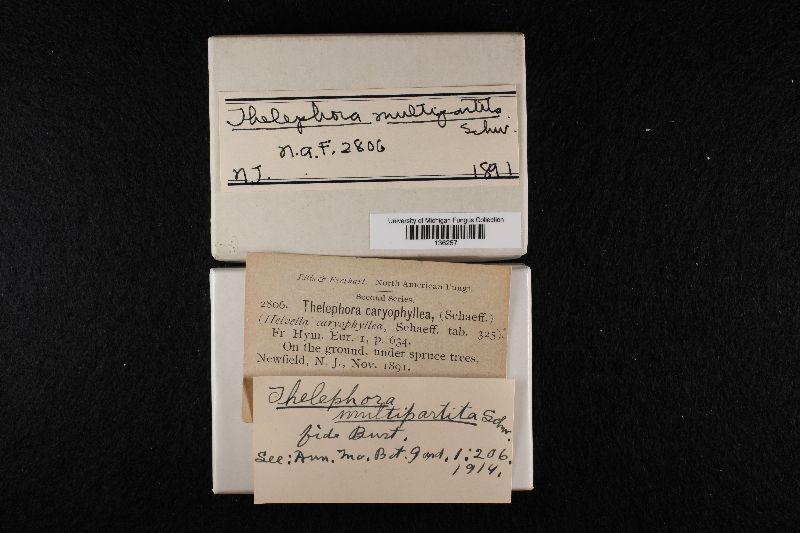 Thelephora multipartita
Schw.
N.A.F. 2806
N.J. 1891
University of Michigan Fungus Collection
136257
Ellis & Everhart. North American Fungi.
Second Series.
2806. Thelephora caryophyllea, (Schaeff.)
(Helvella caryophyllea, Schaeff. tab. 325)
Fr Hym. Eur. 1, p. 634.
On the ground, under spruce trees,
Newfield, N. J., Nov. 1891.
Thelephora
multipartita Schw.
fide Burt.
See: Ann. Mo. Bot. Gard. 1:206.
1914.